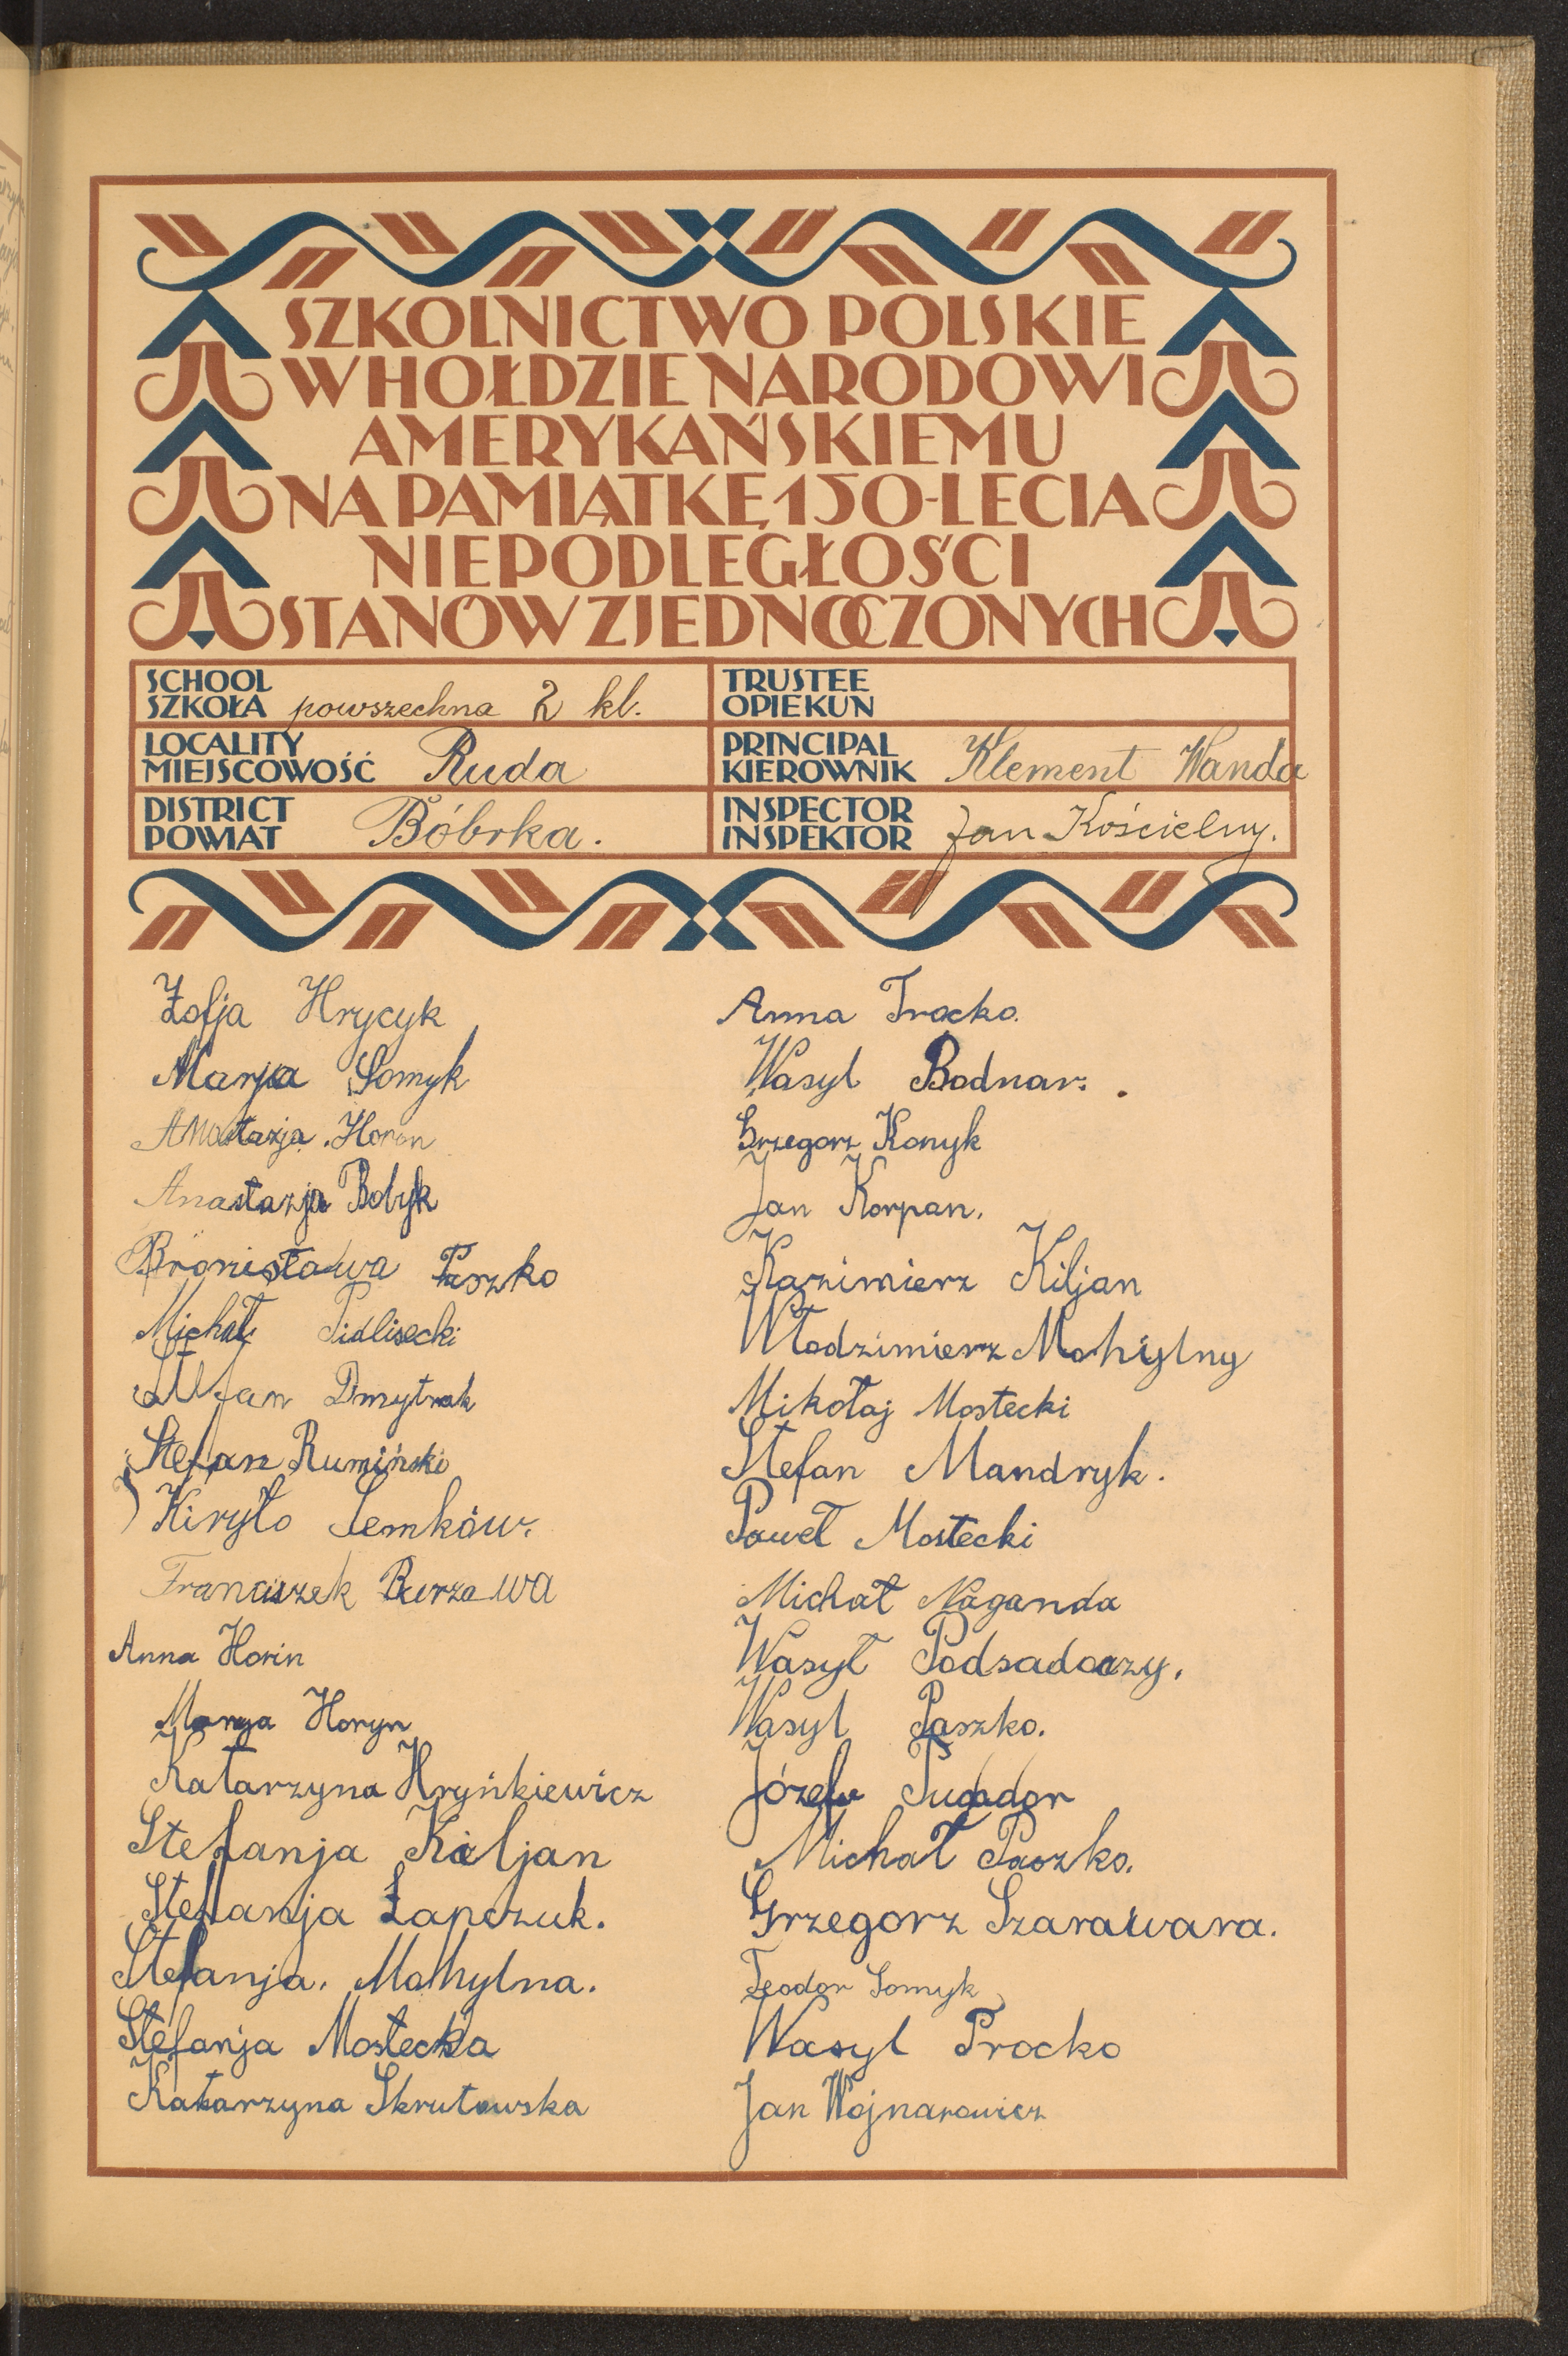 SZKOLNICTWO POLSKIE
W HOŁDZIE NARODOWI
AMERYKAŃSKIEMU
NA PAMIĄTKĘ 150-LECIA
NIEPODLEGŁOŚCI
STANÓW ZJEDNOCZONYCH
SCHOOL
SZKOŁA powszechna 2 kl.
TRUSTEE
OPIEKUN
LOCALITY
MIEJSCOWOŚĆ Ruda
PRINCIPAL
KIEROWNIK Klement Wanda
DISTRICT
POWIAT Bóbrka.
INSPECTOR
INSPEKTOR Jan Kościelny.
Zofja Hrycyk
Marja Somyk
Anastazja Horon
Anastazja Bobyk
Bronisława Paszko
Michał Pidlisecki
Stefan Dmytrak
Stefan Rumiński
Kiryło Semków.
Franciszek Burzawa
Anna Horin
Marya Horyn
Katarzyna Hryńkiewicz
Stefanja Kiljan
Stefanja Łapczuk.
Stefanja. Mohylna.
Stefanja Mostecka
Katarzyna Skrutowska
Anna Trocko.
Wasyl Bodnar.
Grzegorz Konyk
Jan Korpan.
Kazimierz Kiljan
Włodzimierz Mohylny
Mikołaj Mostecki
Stefan Mandryk.
Paweł Mostecki
Michał Naganda
Wasył Podsadoczy.
Wasyl Paszko.
Józef
Michał Paszko.
Grzegorz Szarawara.
Teodor Somyk
Wasyl Procko
Jan Wojnarowicz